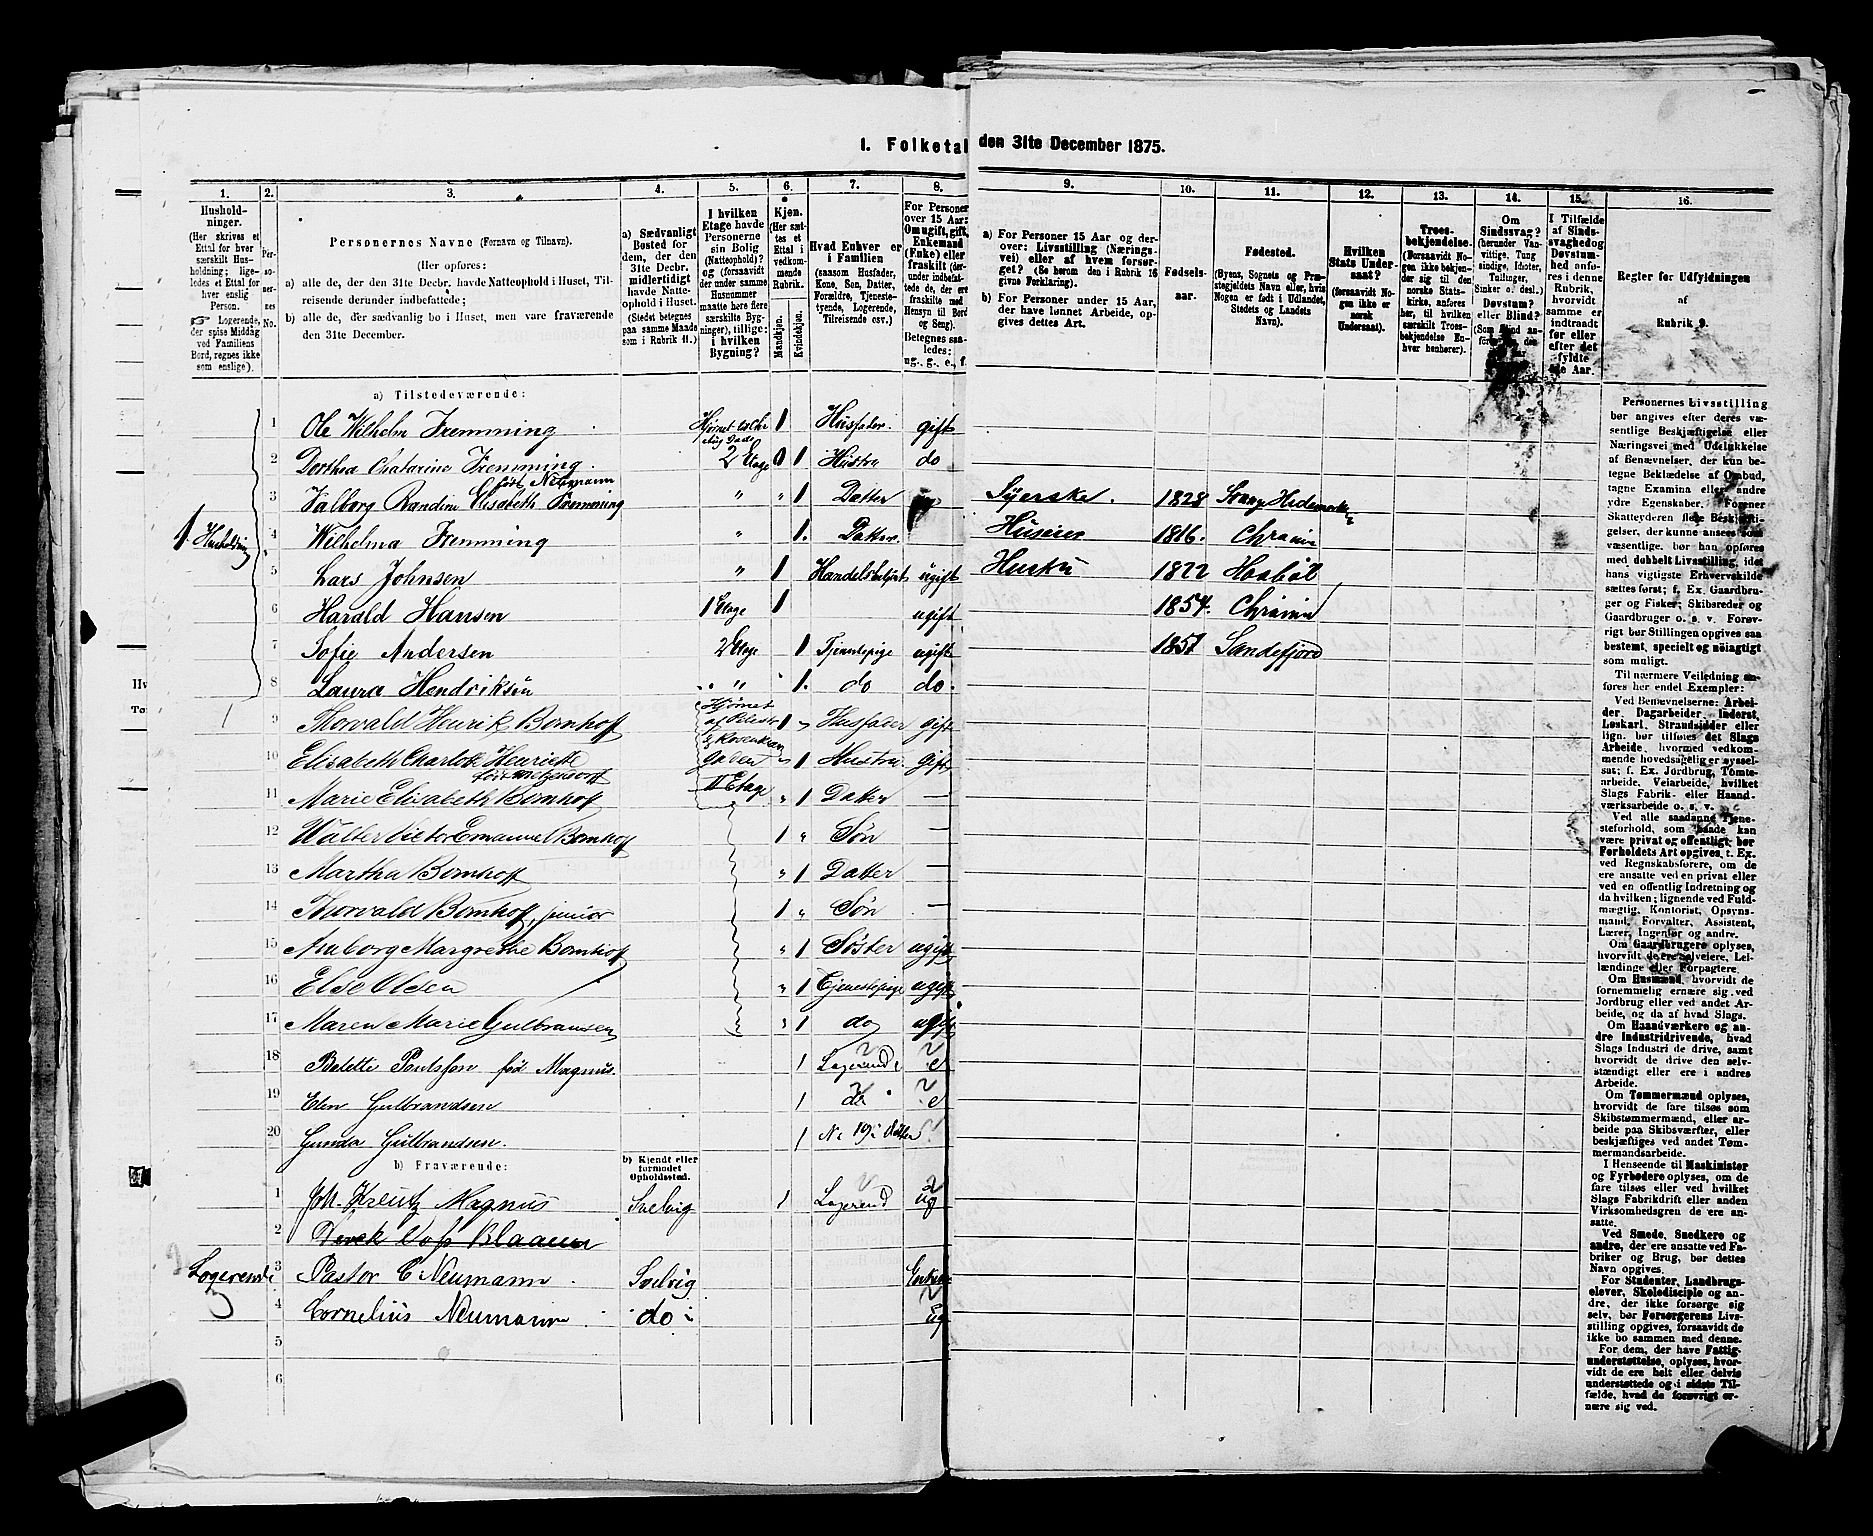 1. Folketal den 31te December 1875.
1. 2. 3. 4. 5. 6. 7. 8. 9. 10. 11. 12. 13. 14. 15. 16.
Hushold-
ninger.
(Her skrives et
Ettal for hver
særskilt Hus-
holdning; lige-
ledes et Ettal for
hver enslig
Person.
☞ Logerende,
der spise Middag
ved Familiens
Bord, regnes ikke
som enslige).
Per-
so-
ner-
nes
No.
Personernes Navne (Fornavn og Tilnavn).
(Her opføres:
a) alle de, der den 31te Decbr. havde Natteophold i Huset, Til-
reisende derunder indbefattede;
b) alle de, der sædvanlig bo i Huset, men vare fraværende
den 31te December.
a) Sædvanligt
Bosted for
dem, der den
31te Decbr.
midlertidigt
havde Natte-
ophold i Huset.
(Stedet betegnes
paa samme Maade
som i Rubrik 11.)
I hvilken
Etage havde
Personerne
sin Bolig
(Natteophold)?
og (forsaavidt
der under samme
Husnummer
maatte høre flere
særskilte Byg-
ninger), tillige:
i hvilken
Bygning?
Kjøn.
(Her sæt-
tes et
Ettal i
vedkom-
mende
Rubrik.
Mandkjøn.
Kvindekjøn.
Hvad Enhver er
i Familien
(saasom Husfader,
Kone, Søn, Datter,
Forældre, Tjeneste-
tyende, Logerende,
Tilreisende osv.)
For Personer
over 15 Aar:
Om ugift, gift,
Enkemand
(Enke) eller
fraskilt (der-
under indbefat-
tede de, der ere
fraskilte med
Hensyn til Bord
og Seng).
Betegnes saa-
ledes:
ug., g., e., f.
a) For Personer 15 Aar og der-
over: Livsstilling (Nærings-
vei) eller af hvem forsør-
get? (Se herom den i Rubrik 16
givne Forklaring).
b) For Personer under 15 Aar,
der have lønnet Arbeide, op-
gives dettes Art.
Fødsels-
aar.
Fødested.
(Byens, Sognets og Præ-
stegjeldets Navn eller, hvis
Nogen er født i Udlandet,
Stedets og Landets
Navn).
Hvilken
Stats Under-
saat?
(forsaavidt No-
gen ikke er
norsk
Undersaat).
Troes-
bekjendelse.
(Forsaavidt No-
gen ikke bekjen-
der sig til den
norske Stats-
kirke, anføres
her, til hvilken
særskilt Troes-
bekjendelse En-
hver henhører).
Om
Sindssvag?
(herunder Van-
vittige, Tung
sindige, Idioter,
Tullinger,
Sinker o. desl.)
Døvstum?
eller Blind?
I Tilfælde
af Sinds-
svaghed og
Døvstum-
hed anfø-
res i denne
Rubrik,
hvorvidt
samme er
indtraadt
før eller
efter det
fyldte
4de Aar.
Regler for Udfyldningen
af
Rubrik 9.
a) Tilstedeværende:
1 Husholdning
1 Ole Wilhelm Fremming. 1 Husfader. gift
2 Dorthea Chatarine Fremming. født Neumann 2 Etage 1 Hustru do
3 Valborg Randine Elisabeth Fremming " " 1 Datter Syerske. 1828
4 Wilhelma Fremming " 1. Datter. 1816. Chrania
5 Lars Johnsen " 1 ugift 1822
6 Harald Hansen 1 Etage 1 ugift 1854. Chrania
7 Sofie Andersen 2 Etage 1 Tjenestepige ugift 1857 Sandefjord
8 Laura Hendriksen " 1. do do.
9 Thorvald Henrik Bomhoff Hjørnet 1 " Husfader gift
10 Elisabeth Charlotte Henriette 1 Hustru gift
II Etage
11 Marie Elisabeth Bomhoff " 1 Datter —
12 Walter Victor Emanuel Bomhoff 1 " Søn —
13 Martha Bomhoff " 1 Datter —
14 Thorvald Bomhoff, junior 1 " Søn —
15 Anborg Margrethe Bomhoff " 1 Søster ugift
16 Else Olsen " 1 Tjenestepige ugift
17 Maren Marie Gulbransen " 1 do ugift
18 Betetti Poulsson født Magnus. 1 Logerende e
19 Elen Gulbrandsen 1 do e
20 Gunda Gulbrandsen. 1 No 19s datter
b) Fraværende:
b) Kjendt eller
formodet
Opholdssted.
1 Joh. Kreutz Magnus Svelvig 1 Logerend ug
2
Logerende
3 Pastor C Neumann. Svelvig
4 Cornelius Neumann do ug
5
6
Personernes Livsstilling
bør angives efter deres væ-
sentlige Beskjæftigelse eller
Næringsvei med Udelukkelse
af Benævnelser, der kun be-
tegne Beklædelse af Ombud,
tagne Examina eller andre
ydre Egenskaber. Forener
Skatteyderen flere Beskjæfti-
gelser, der kunne ansees som
væsentlige, bør han opføres
med dobbelt Livsstilling, idet
hans vigtigste Erhvervskilde
sættes først; f. Ex. Gaardbru-
ger og Fisker; Skibsreder og
Gaardbruger o. s. v. Forøv-
rigt bør Stillingen opgives saa
bestemt, specielt og nøiagtigt
som muligt.
Til nærmere Veiledning an-
føres her endel Exempler:
Ved Benævnelserne: Arbei-
der, Dagarbeider, Inderst,
Løskarl, Strandsidder eller
lign. bør tilføies det Slags
Arbeide, hvormed vedkom-
mende hovedsagelig er syssel-
sat; f. Ex. Jordbrug, Tømte-
arbeide, Veiarbeide, hvilket
Slags Fabrik- eller Haand-
værksarbeide o. s. v.
Ved alle saadanne Tjene-
steforhold, som baade kan
være privat og offentligt, bør
Forholdets Art opgives, t. Ex.
ved Regnskabsførere, om de
ere ansatte ved en privat eller
ved en offentlig Indretning og
da hvilken; lignende ved Fuld-
mægtig, Kontorist, Opsyns-
mand, Forvalter, Assistent,
Lærer, Ingeniør og andre.
Om Gaardbrugere oplyses,
hvorvidt de ere Selveiere, Lei-
lændinge eller Forpagtere.
Om Husmænd, hvorvidt de
fornemmelig ernære sig ved
Jordbrug eller ved andet Ar-
beide, og da af hvad Slags.
Om Haandværkere og an-
dre Industridrivende, hvad
Slags Industri de drive, samt
hvorvidt de drive den selv-
stændigt eller ere i andres
Arbeide.
Om Tømmermænd oplyses,
hvorvidt de fare tilsøs som
Skibstømmermænd, eller ar-
beide paa Skibsværfter, eller
beskjæftiges ved andet Tøm-
mermandsarbeide.
I Henseende til Maskinister
og Fyrbødere oplyses, om de
fare tilsøs eller ved hvilket
Slags Fabrikdrift eller anden
Virksomhedsgren de ere an-
satte.
Ved Smede, Snedkere og
andre, der ere ansatte ved Fa-
briker og Brug, bør dettes
Navn opgives.
For Studenter, Landbrugs-
elever, Skoledisciple og an-
dre, der ikke forsørge sig
selv, bør Forsørgerens Livs-
stilling opgives, forsaavidt de
ikke bo sammen med denne.
For dem, der have Fattig-
understøttelse, oplyses, hvor-
vidt de ere helt eller delvis
understøttede og i sidste Til-
fælde, hvad de forøvrigt er-
nære sig ved.